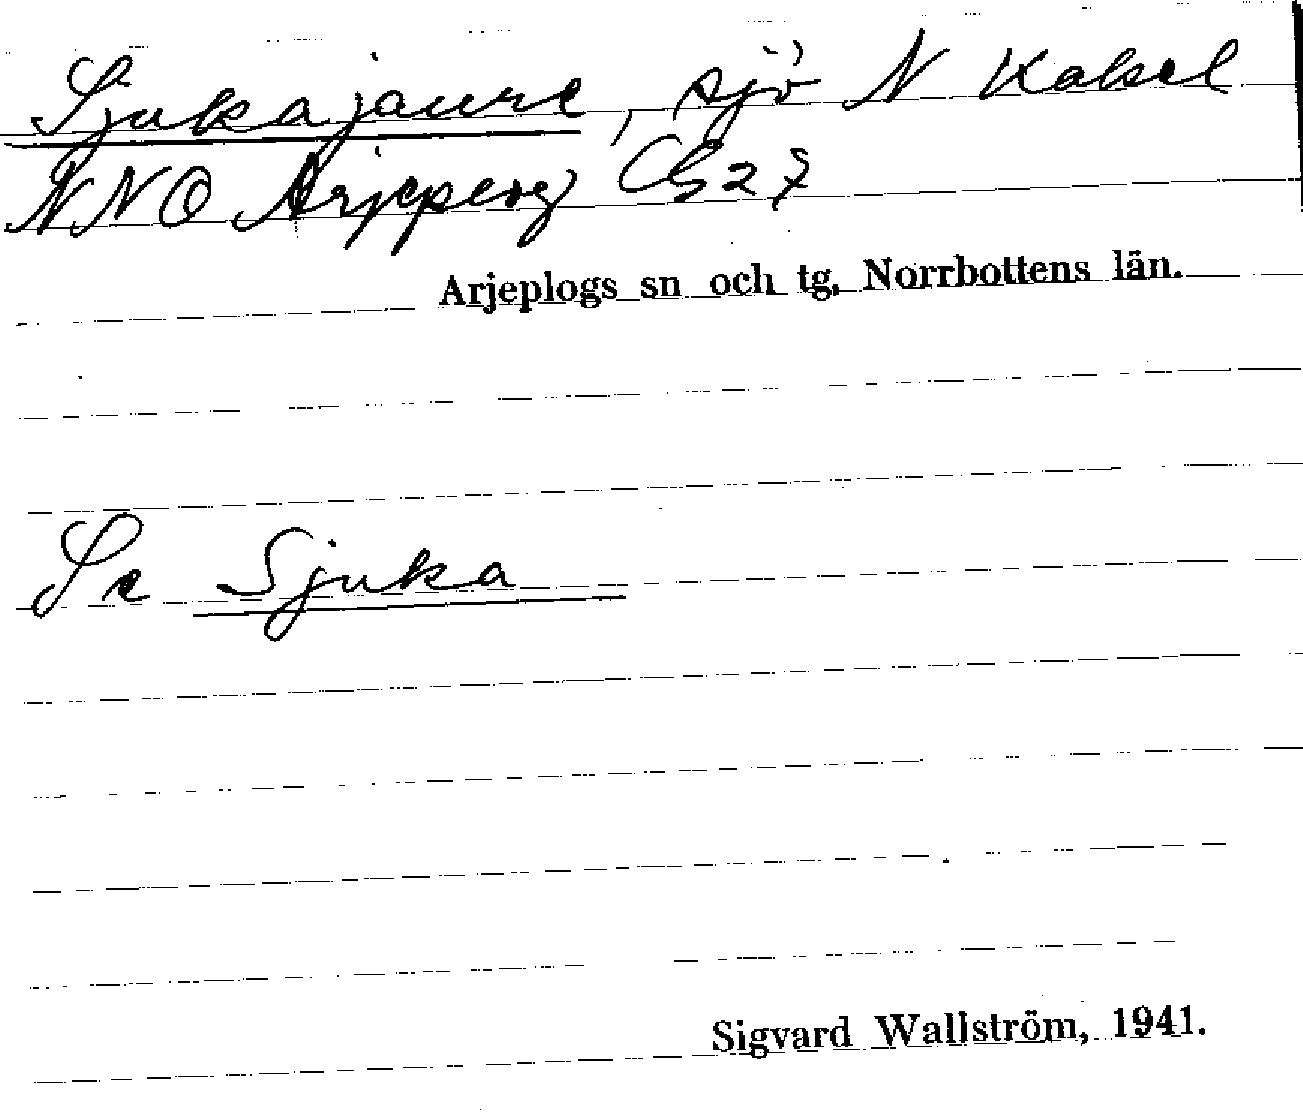 Sjukajaure, sjö N Kakel
NNO Arjeplog Gb 27
Arjeplogs sn och tg, Norrbottens län.
Se Sjuka
Sigvard Wallström, 1941.